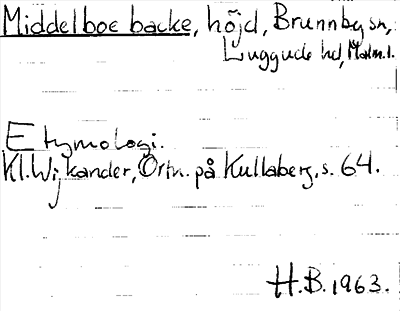 Middelboe backe, höjd, Brunnby sn,
Luggude hd, Malm. l.
Etymologi.
Kl. Wijkander, Ortn. på Kullaberg, s. 64.
H.B. 1963.